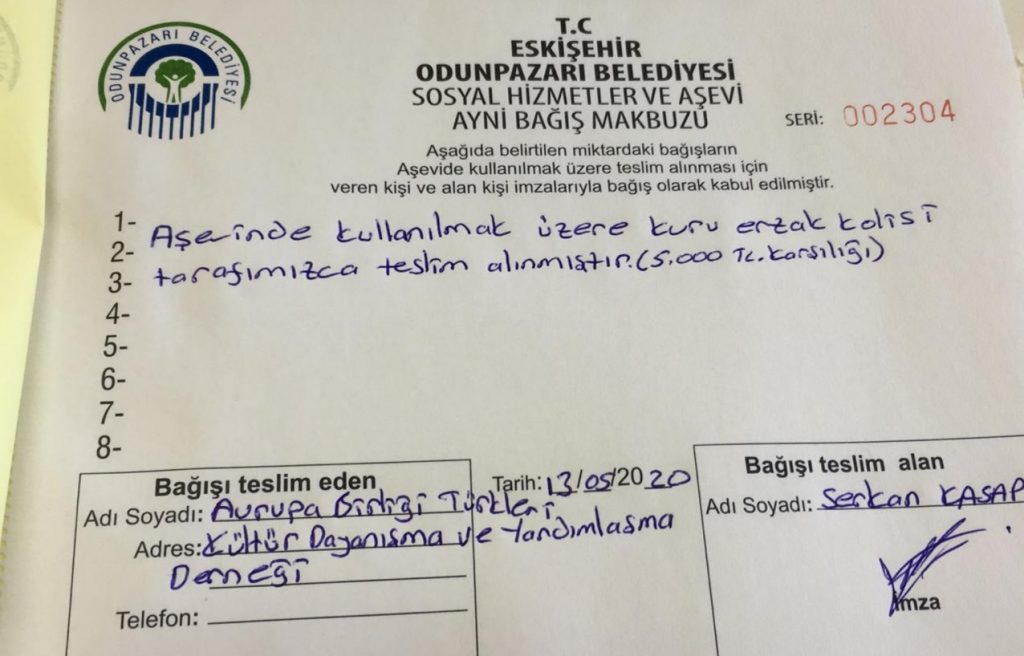 ODUNPAZARI BELEDİYESİ
T.C
ESKİŞEHİR
ODUNPAZARI BELEDİYESİ
SOSYAL HİZMETLER VE AŞEVİ
AYNİ BAĞIŞ MAKBUZU
SERİ: 002304
Aşağıda belirtilen miktardaki bağışların
Aşevide kullanılmak üzere teslim alınması için
veren kişi ve alan kişi imzalarıyla bağış olarak kabul edilmiştir.
1- Aşevinde kullanılmak üzere kuru erzak kolisi
2-
3- tarafımızca teslim alınmıştır. (5.000 TL. karşılığı)
4-
5-
6-
7-
8-
Bağışı teslim eden
Adı Soyadı: Avrupa Birliği Türkleri
Adres: Kültür Dayanışma ve Yardımlaşma
Derneği
Telefon:
Tarih: 13/05/2020
Bağışı teslim alan
Adı Soyadı: Serkan KASAP
İmza